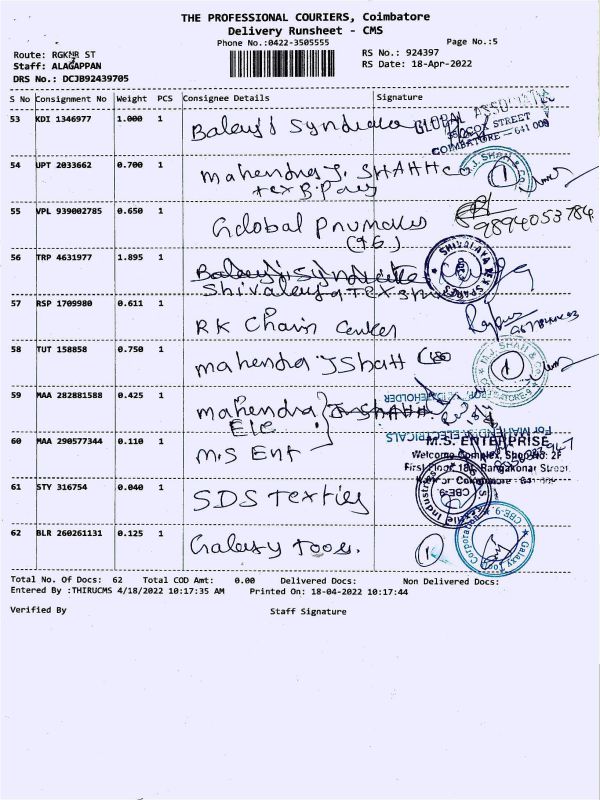 THE PROFESSIONAL COURIERS, Coimbatore
Delivery Runsheet - CMS
Phone No.:0422-3505555
Page No.:5
Route: RGKNR ST
Staff: ALAGAPPAN
DRS No.: DCJB92439705
RS No.: 924397
RS Date: 18-Apr-2022
S No Consignment No Weight PCS Consignee Details Signature
53 KDI 1346977 1.000 1 Balaji Syndicate
GLOBAL ASSOCIATE
STREET
COIMBATORE - 641 009
54 UPT 2033662 0.700 1 Mahendra J. SHAHH CO
55 VPL 939002785 0.650 1 Global Pnumatics
9894053784
56 TRP 4631977 1.895 1 Balaji Syndicate
SHIVALAYA TEX SPARES
57 RSP 1709980 0.611 1 RK Chain Center
58 TUT 158858 0.750 1 mahendra J Shah
M.J. SHAH & CO
COIMBATORE-9
59 MAA 282881588 0.425 1 mahendra J. SHAHH.
Ele
For MAHENDRA ELECTRICALS
60 MAA 290577344 0.110 1 M.S Ent
M.S. ENTERPRISE
Welcome Complex, Shop No: 2F
First Floor 181, Rangakonar Street,
61 STY 316754 0.040 1 SDS Textiles
CBE-9
62 BLR 260261131 0.125 1 Galaxy Tools.
Galaxy Tool Corporation
CBE-9
Total No. Of Docs: 62 Total COD Amt: 0.00 Delivered Docs: Non Delivered Docs:
Entered By :THIRUCMS 4/18/2022 10:17:35 AM Printed On: 18-04-2022 10:17:44
Verified By Staff Signature